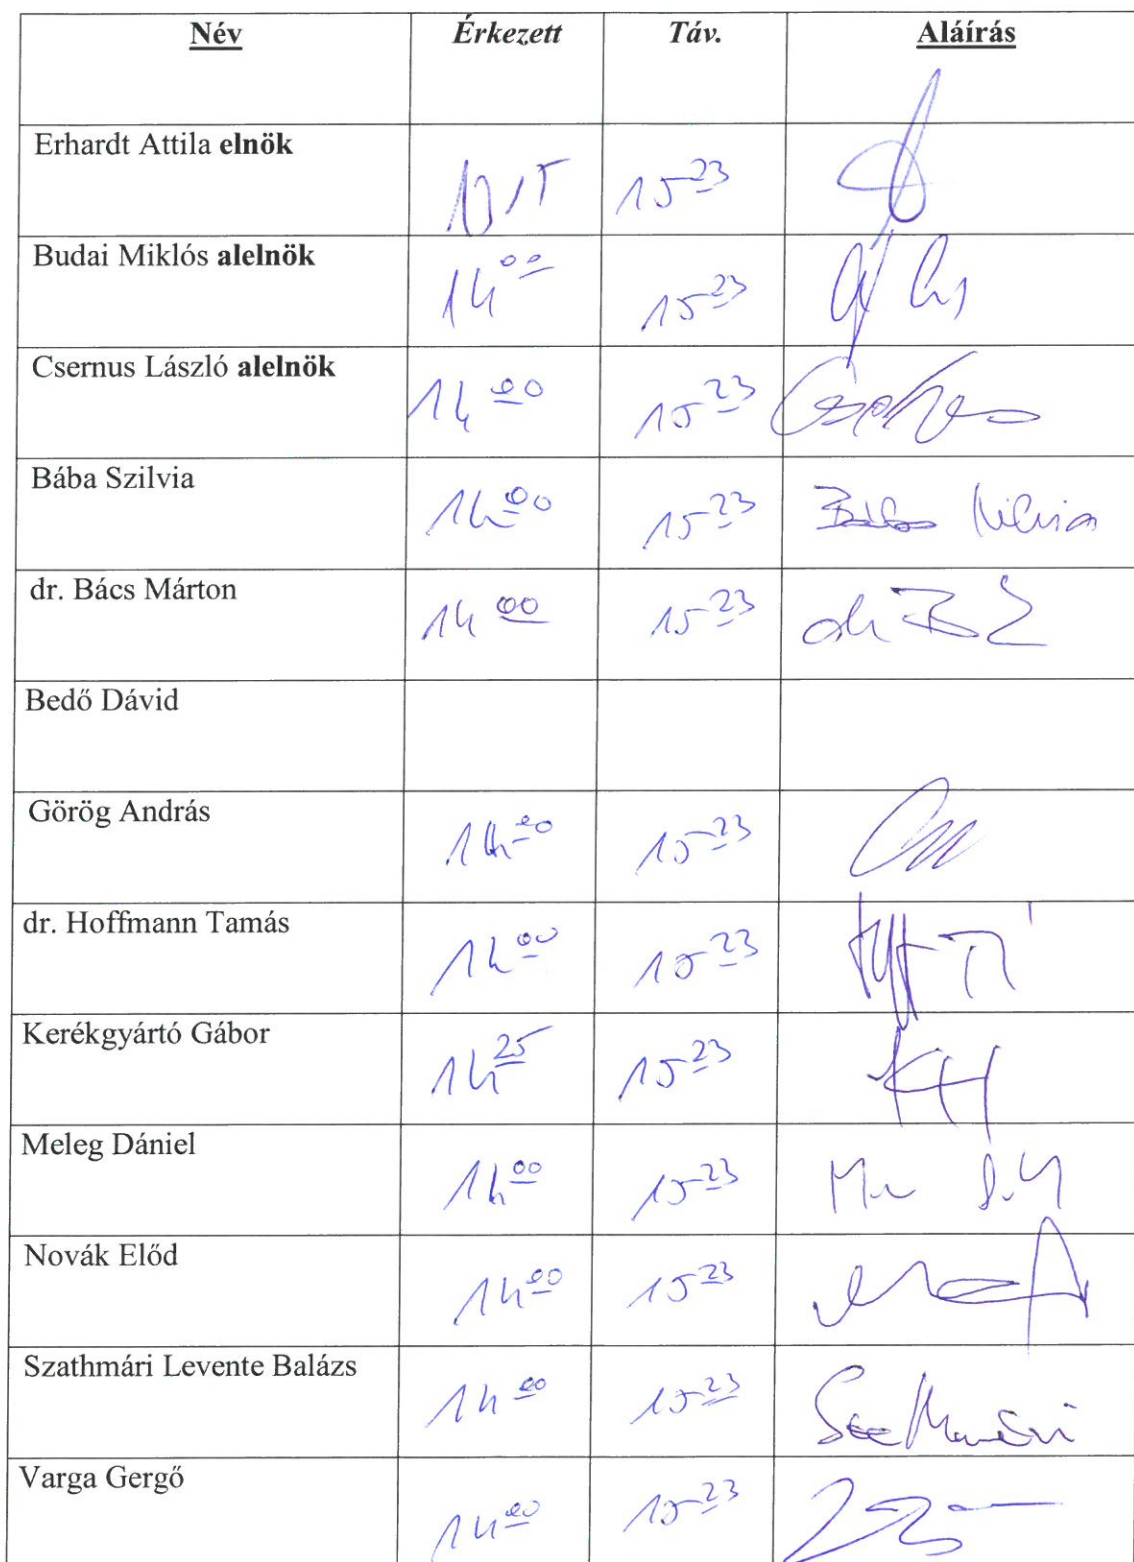 Név Érkezett Táv. Aláírás
Erhardt Attila elnök 15 23
Budai Miklós alelnök 14 00 15 23
Csernus László alelnök 14 00 15 23
Bába Szilvia 14 00 15 23 Bába Szilvia
dr. Bács Márton 14 00 15 23
Bedő Dávid
Görög András 14 00 15 23
dr. Hoffmann Tamás 14 00 15 23
Kerékgyártó Gábor 14 25 15 23
Meleg Dániel 14 00 15 23
Novák Előd 14 00 15 23
Szathmári Levente Balázs 14 00 15 23 Szathmári
Varga Gergő 14 00 15 23